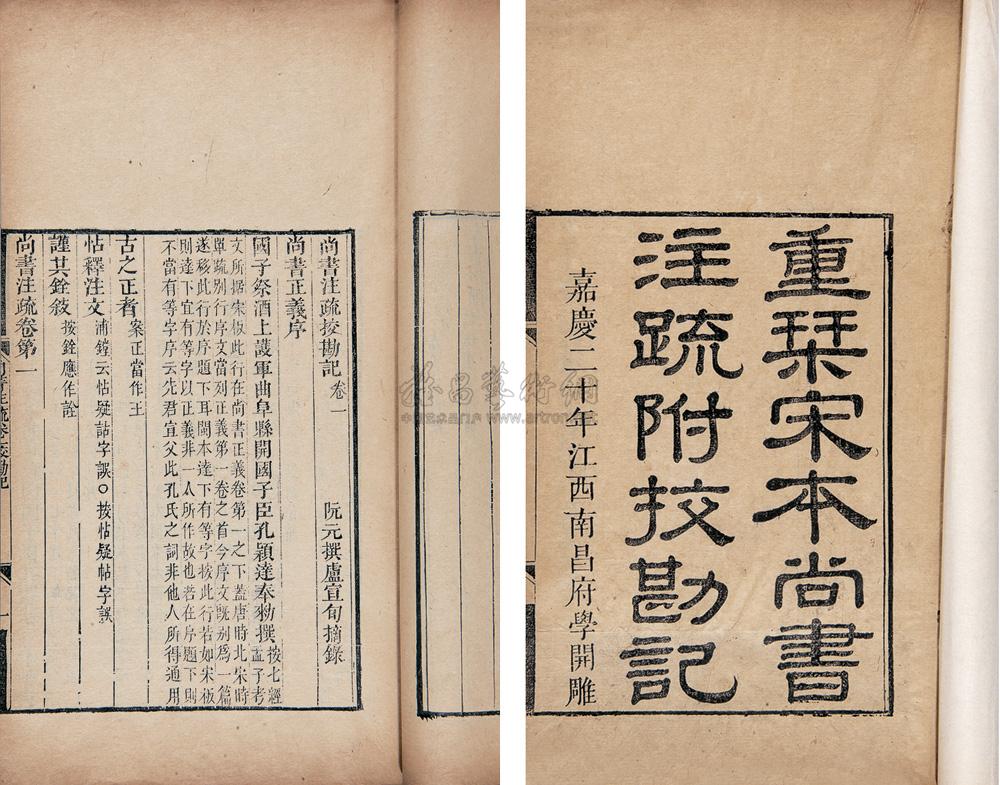 重栞宋本尚書
注疏附挍勘記
嘉慶二十年江西南昌府學開雕
尚書注疏挍勘記卷一 阮元撰盧宣旬摘錄
尚書正義序
國子祭酒上護軍曲阜縣開國子臣孔穎達奉勑撰
按七經孟子考
文所据宋板此行在尚書正義卷第一之下蓋唐時北宋時
單疏別行序文當列正義第一卷之首今序文既別為一篇
遂移此行於序題下耳閩本達下有等字按此行若如宋板
則達下宜有等字以正義非一人所作故也若在序題下則
不當有等字序云先君宣父此孔氏之詞非他人所得通用
古之正者 案正當作王
帖釋注文 浦鏜云帖疑詁字誤○按帖疑帖字誤
謹其銓敍 按銓應作詮
尚書注疏卷第一
雅昌藝術網
中国艺术品门户 www.artron.